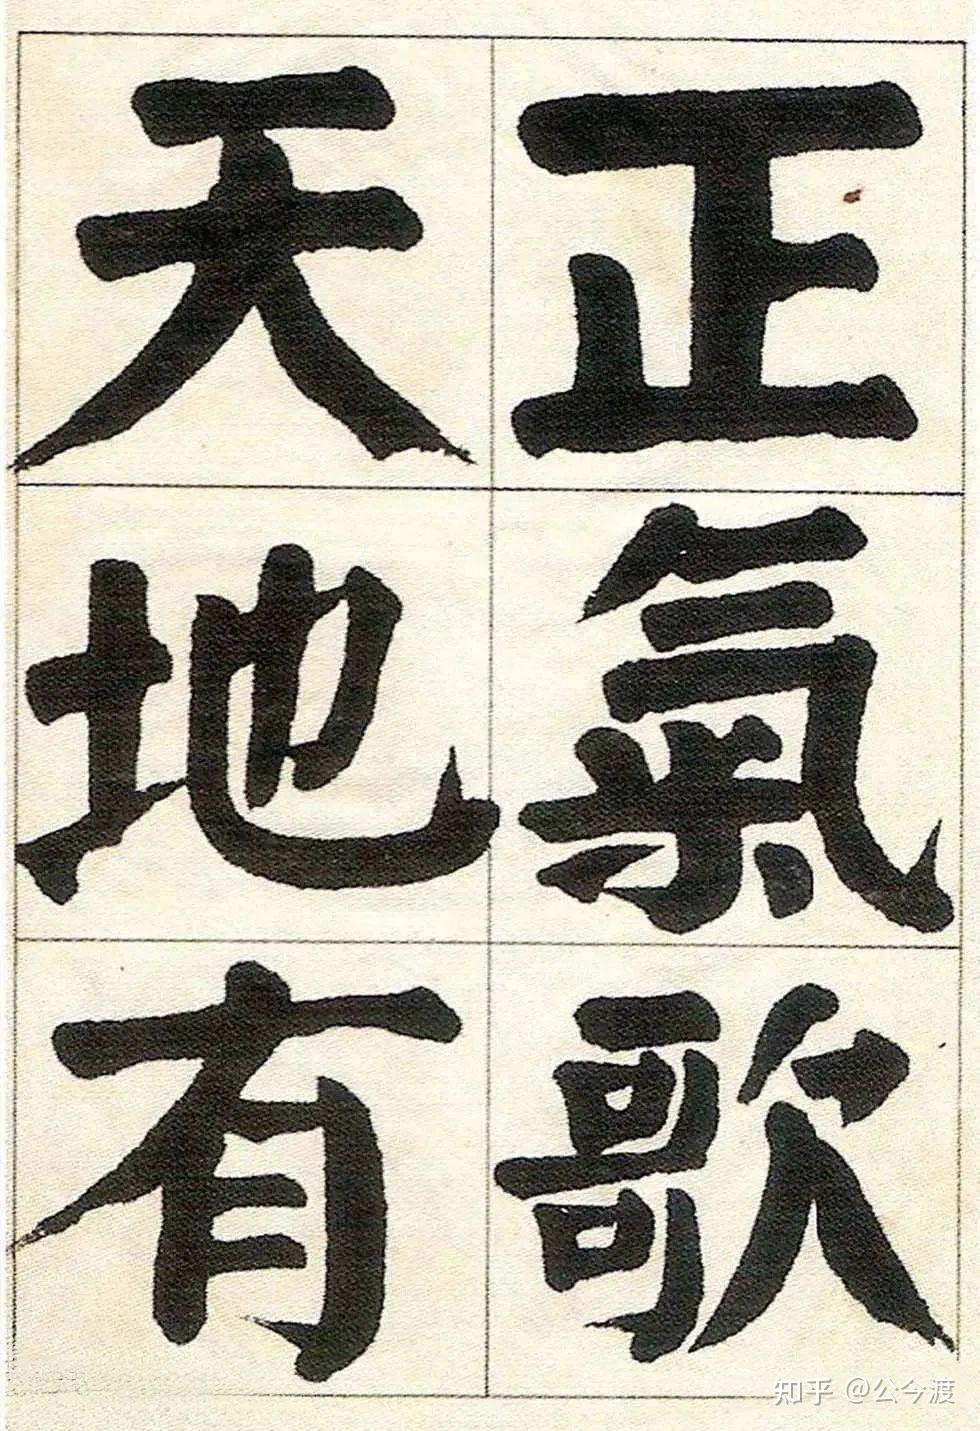 正氣歌
天地有
知乎 @公今渡